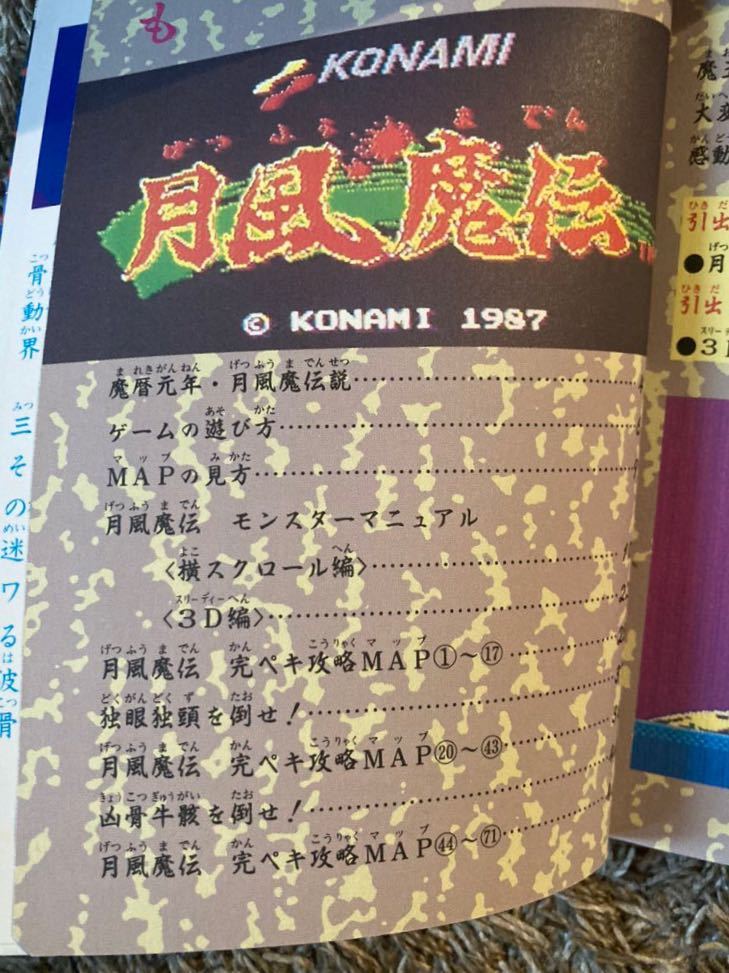 も
KONAMI
げっ ふう ま でん
月風魔伝
TM
© KONAMI 1987
まれきがんねん げつふうまでんせつ
魔暦元年・月風魔伝説
あそ かた
ゲームの遊び方
マップ みかた
MAPの見方
げつふうまでん
月風魔伝 モンスターマニュアル
よこ へん
〈横スクロール編〉
スリーディーへん
〈3D編〉
げつふうまでん かん こうりゃくマップ
月風魔伝 完ペキ攻略MAP①〜⑰
どくがんどくず たお
独眼独頭を倒せ!
げつふうまでん かん こうりゃくマップ
月風魔伝 完ペキ攻略MAP⑳〜㊸
きょうこつぎゅうがい たお
凶骨牛骸を倒せ!
げつふうまでん かん こうりゃくマップ
月風魔伝 完ペキ攻略MAP㊹〜�71
こつどうかい
骨動界
みつ
三その
めい
迷ワる
は
波
こつ
骨
ま
魔
だいへ
大変
かんど
感動
ひきだ
引出
げつ
●月
ひきだ
引出
スリーデ
●3D